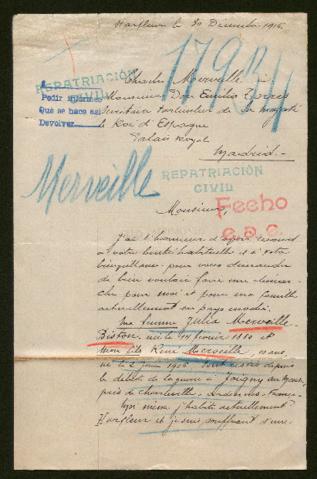 Harfleur le 30 Décembre 1916
17904
REPATRIACIÓN
CIVIL
Pedir informes
Que se hace así
Devolver
Charles Merveille à
Monsieur Don Emilio Torres
Secrétaire Particulier de Sa Majesté
le Roi d'Espagne
Palais Royal
Madrid.
Merveille
REPATRIACIÓN
CIVIL
Fecho
Monsieur,
J'ai l'honneur d'avoir recours
à votre bonté habituelle et à votre
bienveillance pour vous demander
de bien vouloir faire une démar-
che pour moi et pour ma famille
actuellement en pays envahi.
Ma femme Julia Merveille
Biston, née le 14 février 1880 et
mon fils René Merveille,
né le 2 1906 sont restés depuis
le début de la guerre à Joigny sur Meuse,
près de Charleville, Ardennes, France.
Moi même j'habite actuellement
Harfleur et je suis souffrant